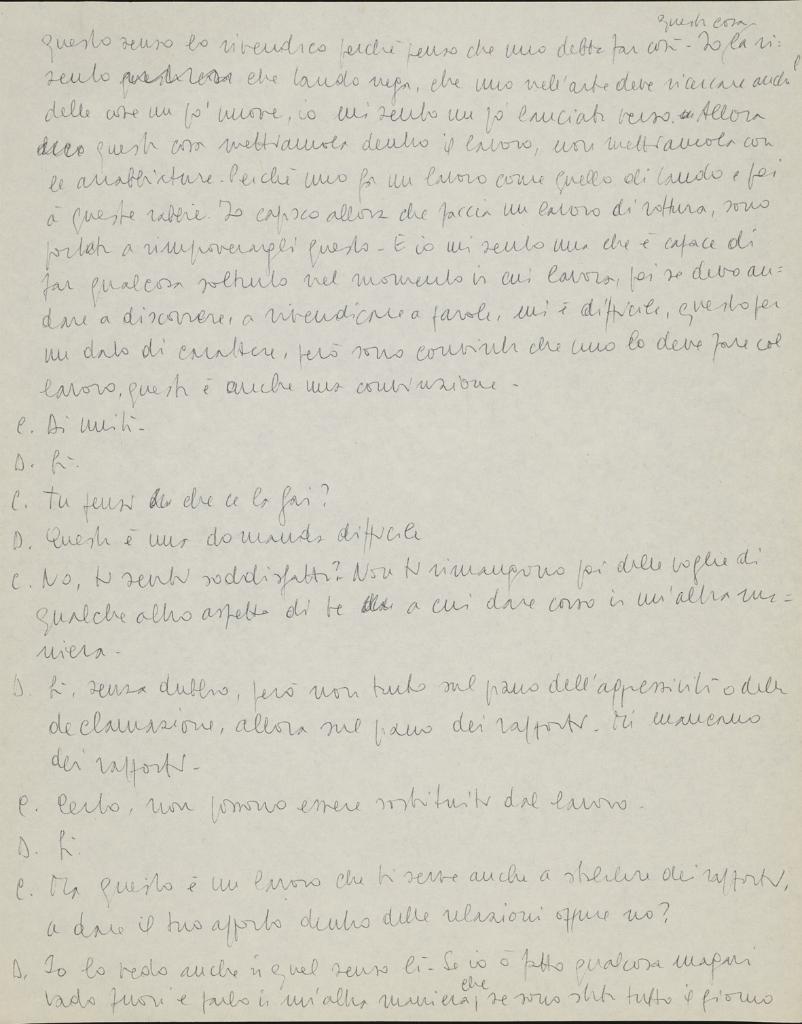 questa cosa
questo senso lo rivendico perché penso che uno debba far così - Io la ri-
sento che Lando nega, che uno nell'arte deve ricercare anche
delle cose un po' nuove, io mi sento un po' lanciata verso. Allora
questa cosa mettiamola dentro il lavoro, non mettiamola con
le arrabbiature. Perché uno fa un lavoro come quello di Lando e poi
à queste rabbie. Io capisco allora che faccia un lavoro di rottura, sono
portata a rimproverargli questo - E io mi sento una che è capace di
far qualcosa soltanto nel momento in cui lavora, poi se devo an=
dare a discorrere, a rivendicare a parole, mi è difficile, questo per
un dato di carattere, però sono convinta che uno lo deve fare col
lavoro, questa è anche una convinzione -
C. Di unità -
D. Sì.
C. Tu pensi che ce la fai?
D. Questa è una domanda difficile
C. No, ti senti soddisfatta? Non ti rimangono poi delle voglie di
qualche altro aspetto di te a cui dare corso in un'altra ma=
niera -
D. Sì, senza dubbio, però non tanto sul piano dell'aggressività o della
declamazione, allora sul piano dei rapporti. Mi mancano
dei rapporti -
C. Certo, non possono essere sostituiti dal lavoro.
D. Sì.
C. Ma questo è un lavoro che ti serve anche a stabilire dei rapporti,
a dare il tuo apporto dentro delle relazioni oppure no?
D. Io lo vedo anche in quel senso lì - Se io ò fatto qualcosa magari
vado fuori e parlo in un'altra maniera, che se sono stata tutto il giorno